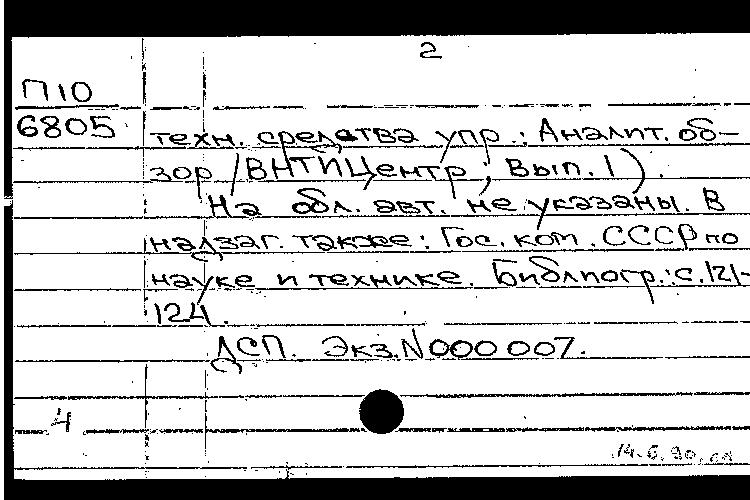 2
П10
6805
техн. средства упр.: Аналит. об-
зор / ВНТИЦентр; Вып. 1).
На обл. авт. не указаны. В
надзаг. также: Гос. ком. СССР по
науке и технике. Библиогр.: с. 121-
124.
ДСП. Экз. N 000007.
4
14.6.90.